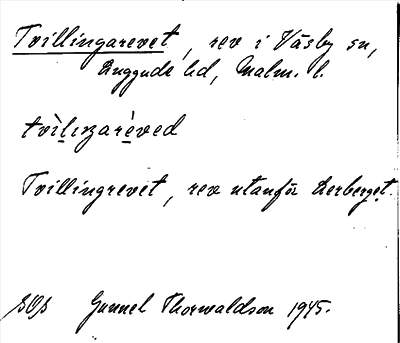 Tvillingarevet, rev i Väsby sn,
Luggude hd, Malm. l.
tvìlıŋarèved
Tvillingrevet, rev utanför Lerberget.
SOS Gunnel Thorwaldson 1945.